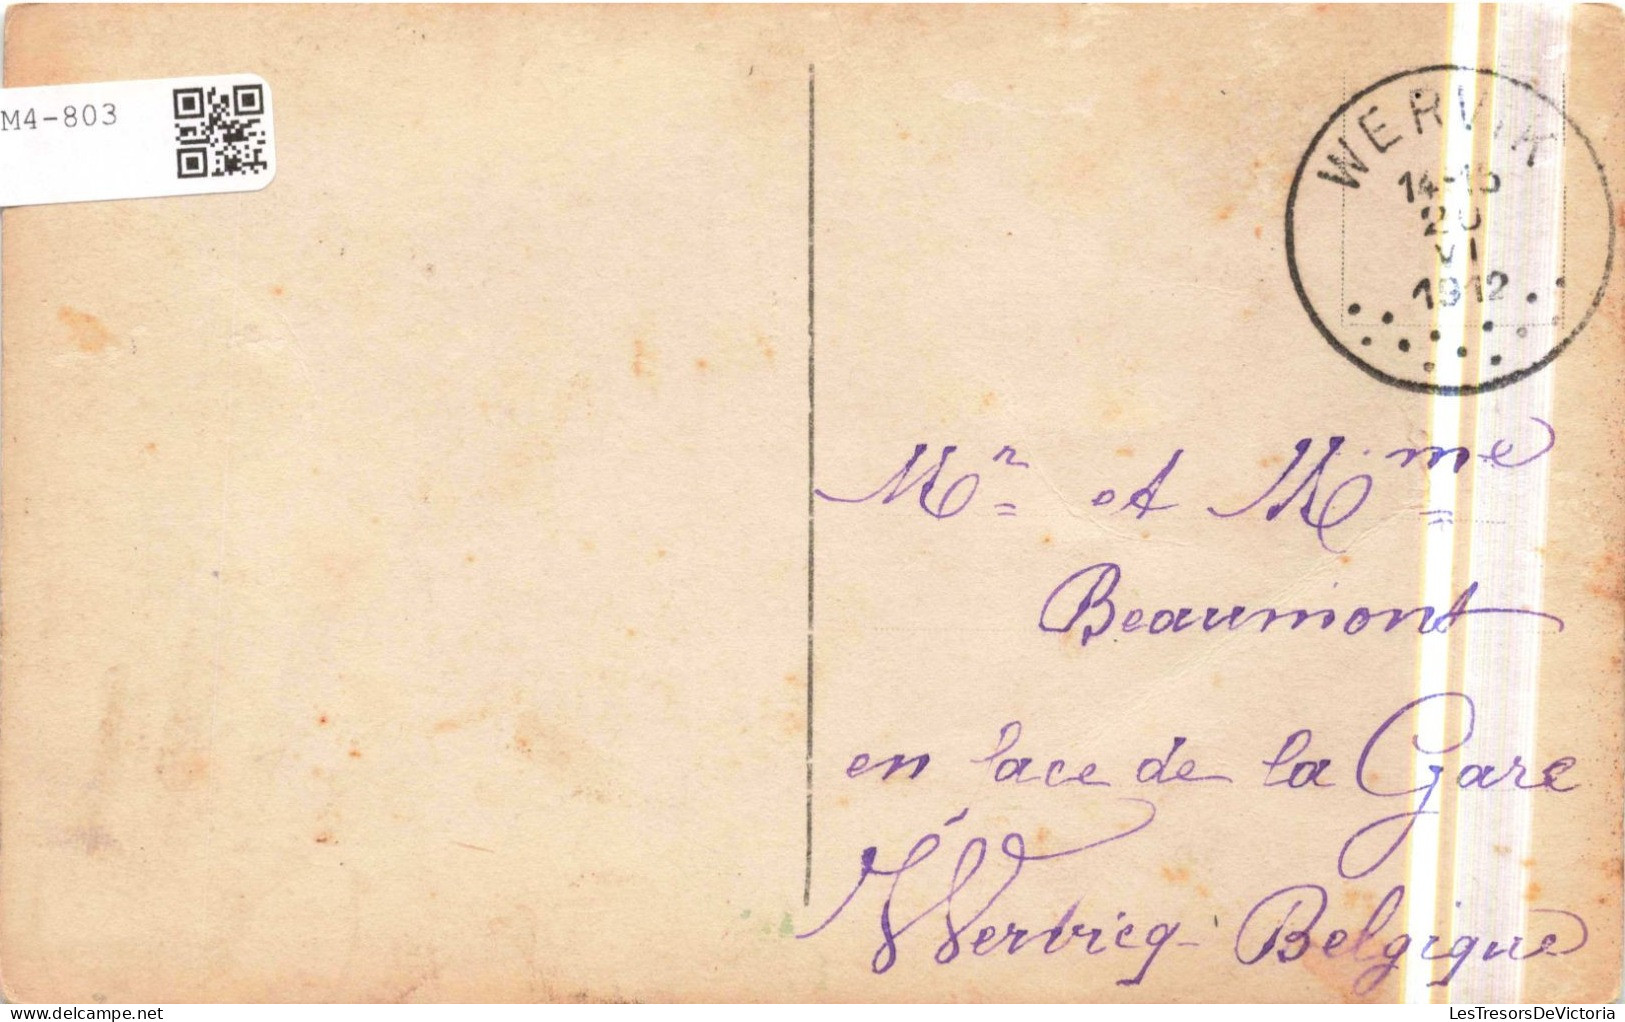 M4-803
WERVIK
14-15
20
VI
1912
Mr et Mme
Beaumont
en face de la Gare
Wervicq - Belgique
delcampe.net
LesTresorsDeVictoria